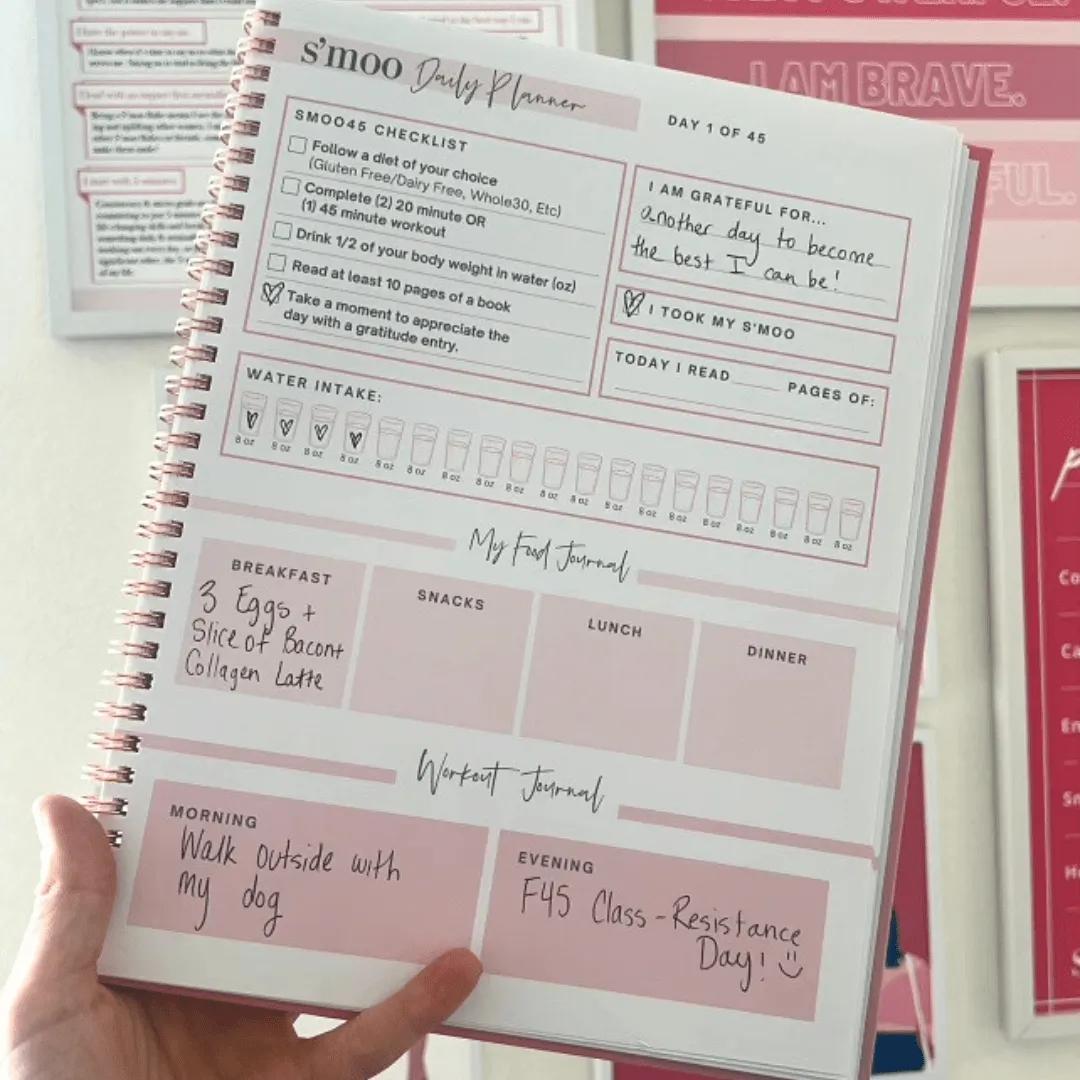 s'moo Daily Planner
DAY 1 OF 45
SMOO45 CHECKLIST
Follow a diet of your choice
(Gluten Free/Dairy Free, Whole30, Etc)
Complete (2) 20 minute OR
(1) 45 minute workout
Drink 1/2 of your body weight in water (oz)
Read at least 10 pages of a book
Take a moment to appreciate the
day with a gratitude entry.
I AM GRATEFUL FOR...
another day to become
the best I can be!
I TOOK MY S'MOO
TODAY I READ PAGES OF:
WATER INTAKE:
8 oz 8 oz 8 oz 8 oz 8 oz 8 oz 8 oz 8 oz 8 oz 8 oz 8 oz 8 oz 8 oz 8 oz 8 oz 8 oz 8 oz 8 oz 8 oz
My Food Journal
BREAKFAST
3 Eggs +
Slice of Bacon+
Collagen Latte
SNACKS
LUNCH
DINNER
Workout Journal
MORNING
Walk outside with
my dog
EVENING
F45 Class - Resistance
Day!
I AM BRAVE.